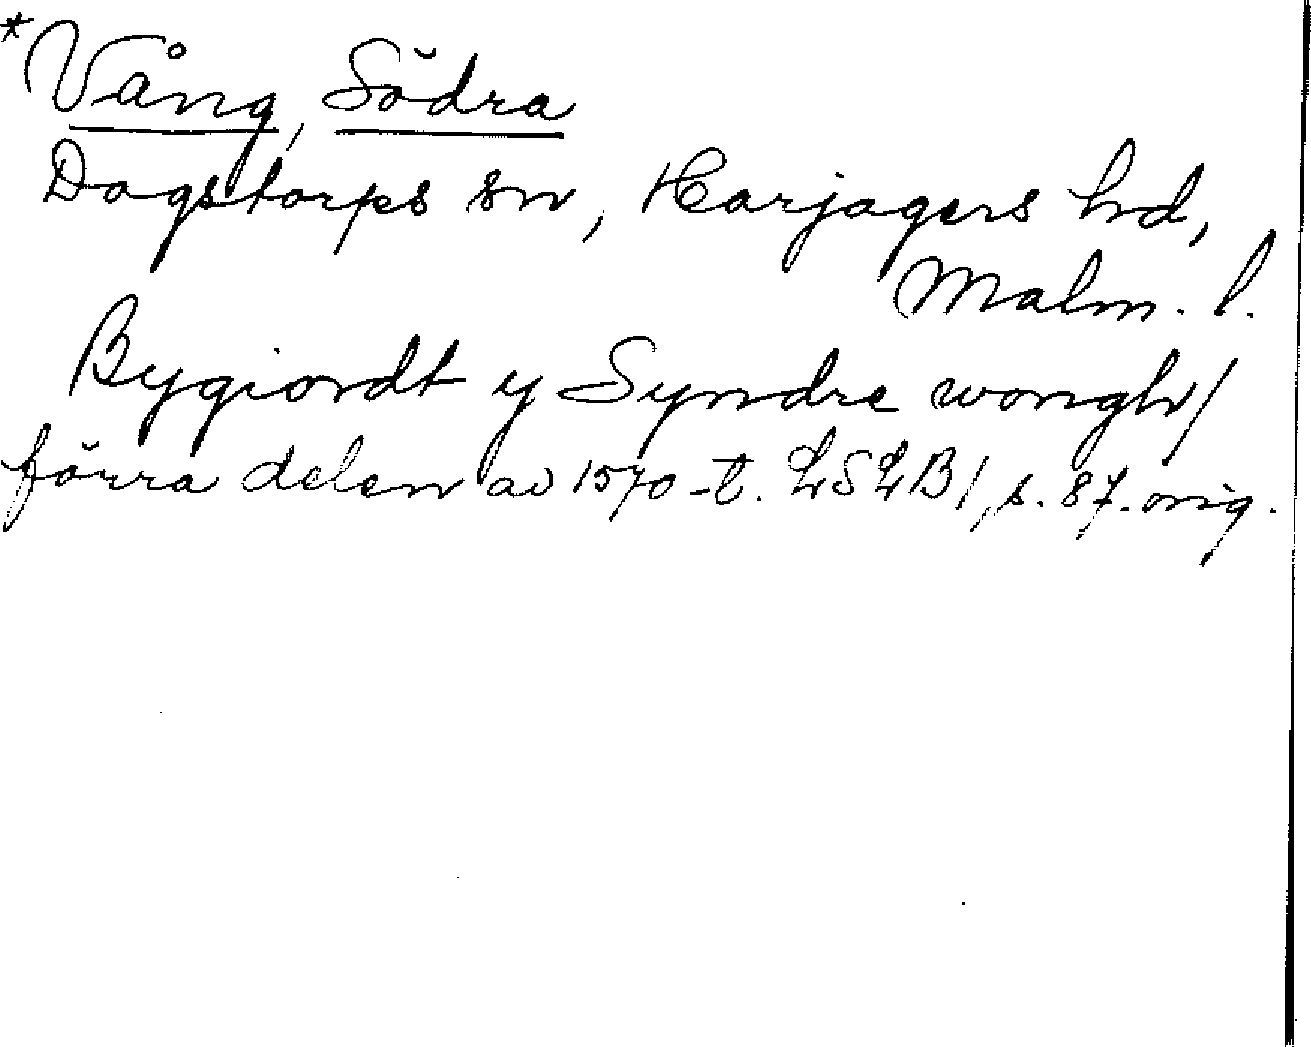 *Vång, Södra
Dagstorps sn, Harjagers hd,
Malm. l.
Bygiordt y Syndre wongh/
förra delen av 1570-t. LSLB/, s. 87. orig.